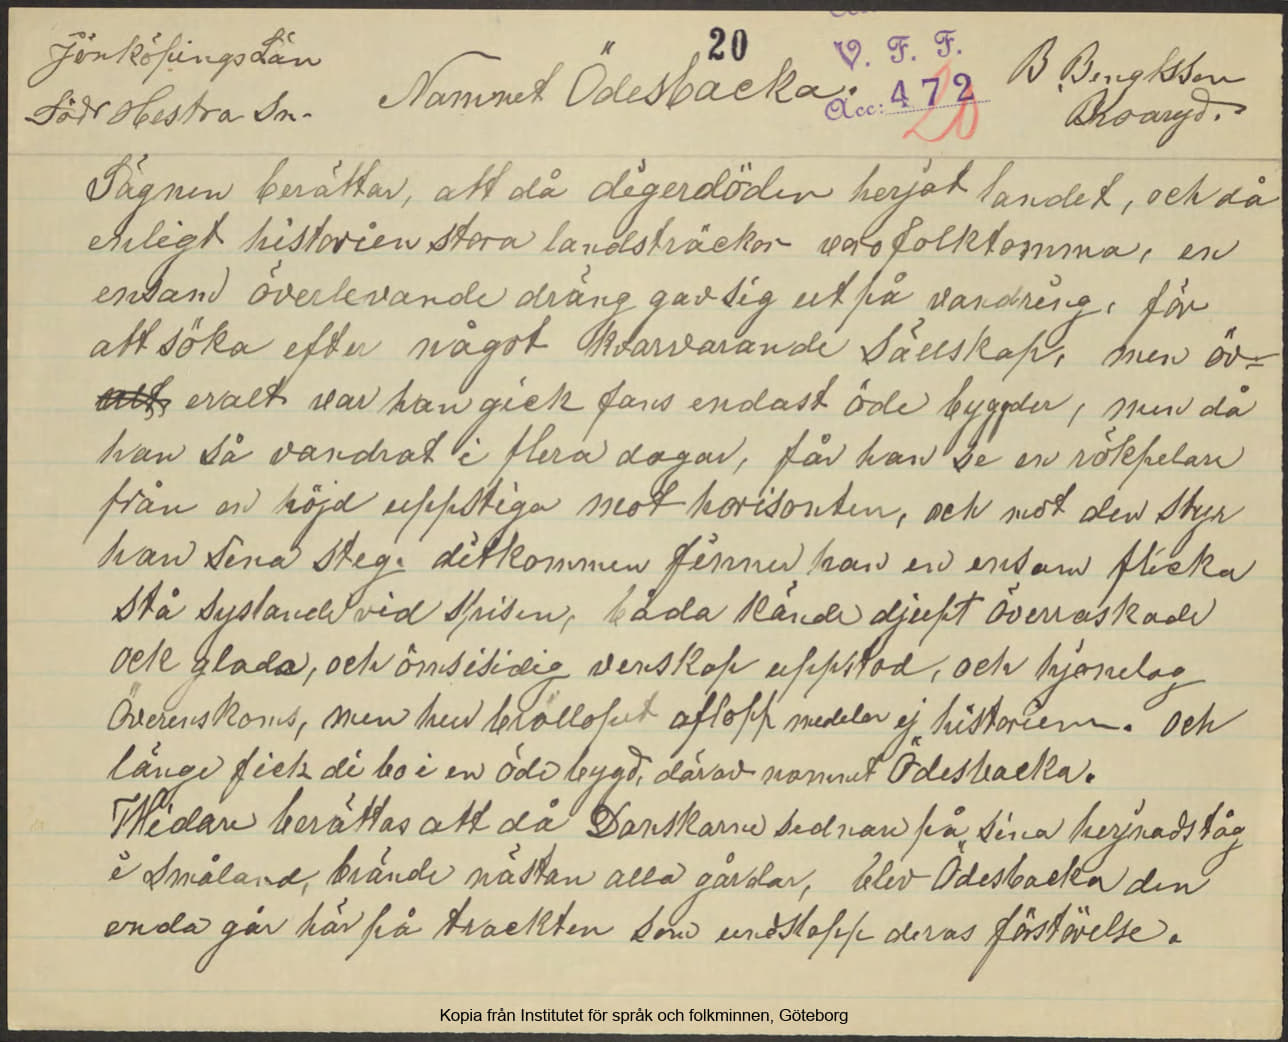 20
Jönköpings Län
Namnet Ödesbacka.
V. F. F.
B. Bengtsson
Södr Hestra Sn.
Acc: 472
20
Broaryd.
Sägnen berättar, att då digerdöden herjat landet, och då
enligt historien stora landsträckor varo folktomma, en
ensam överlevande dräng gav sig ut på vandring, för
att söka efter något kvarvarande Sällskap, men öv-
eralt var han gick fans endast öde bygder, men då
han så vandrat i flera dagar, får han se en rökpelare
från en höjd uppstiga mot horisonten, och mot den styr
han sina steg. ditkommen finner han en ensam flicka
stå syslande vid spisen, båda kände djupt överraskade
ock glada, och ömsisidig venskap uppstod, och hjonelag
överenskoms, men hur bröllopet aflopp medelar ej historien. och
länge fick di bo i en öde bygd, därav namnet Ödesbacka.
Widare berättas att då Danskarne sednare på sina herjnadståg
i Småland, brände nästan alla gårdar, blev Ödesbacka den
enda går här på trackten som undslapp deras förstörelse.
Kopia från Institutet för språk och folkminnen, Göteborg